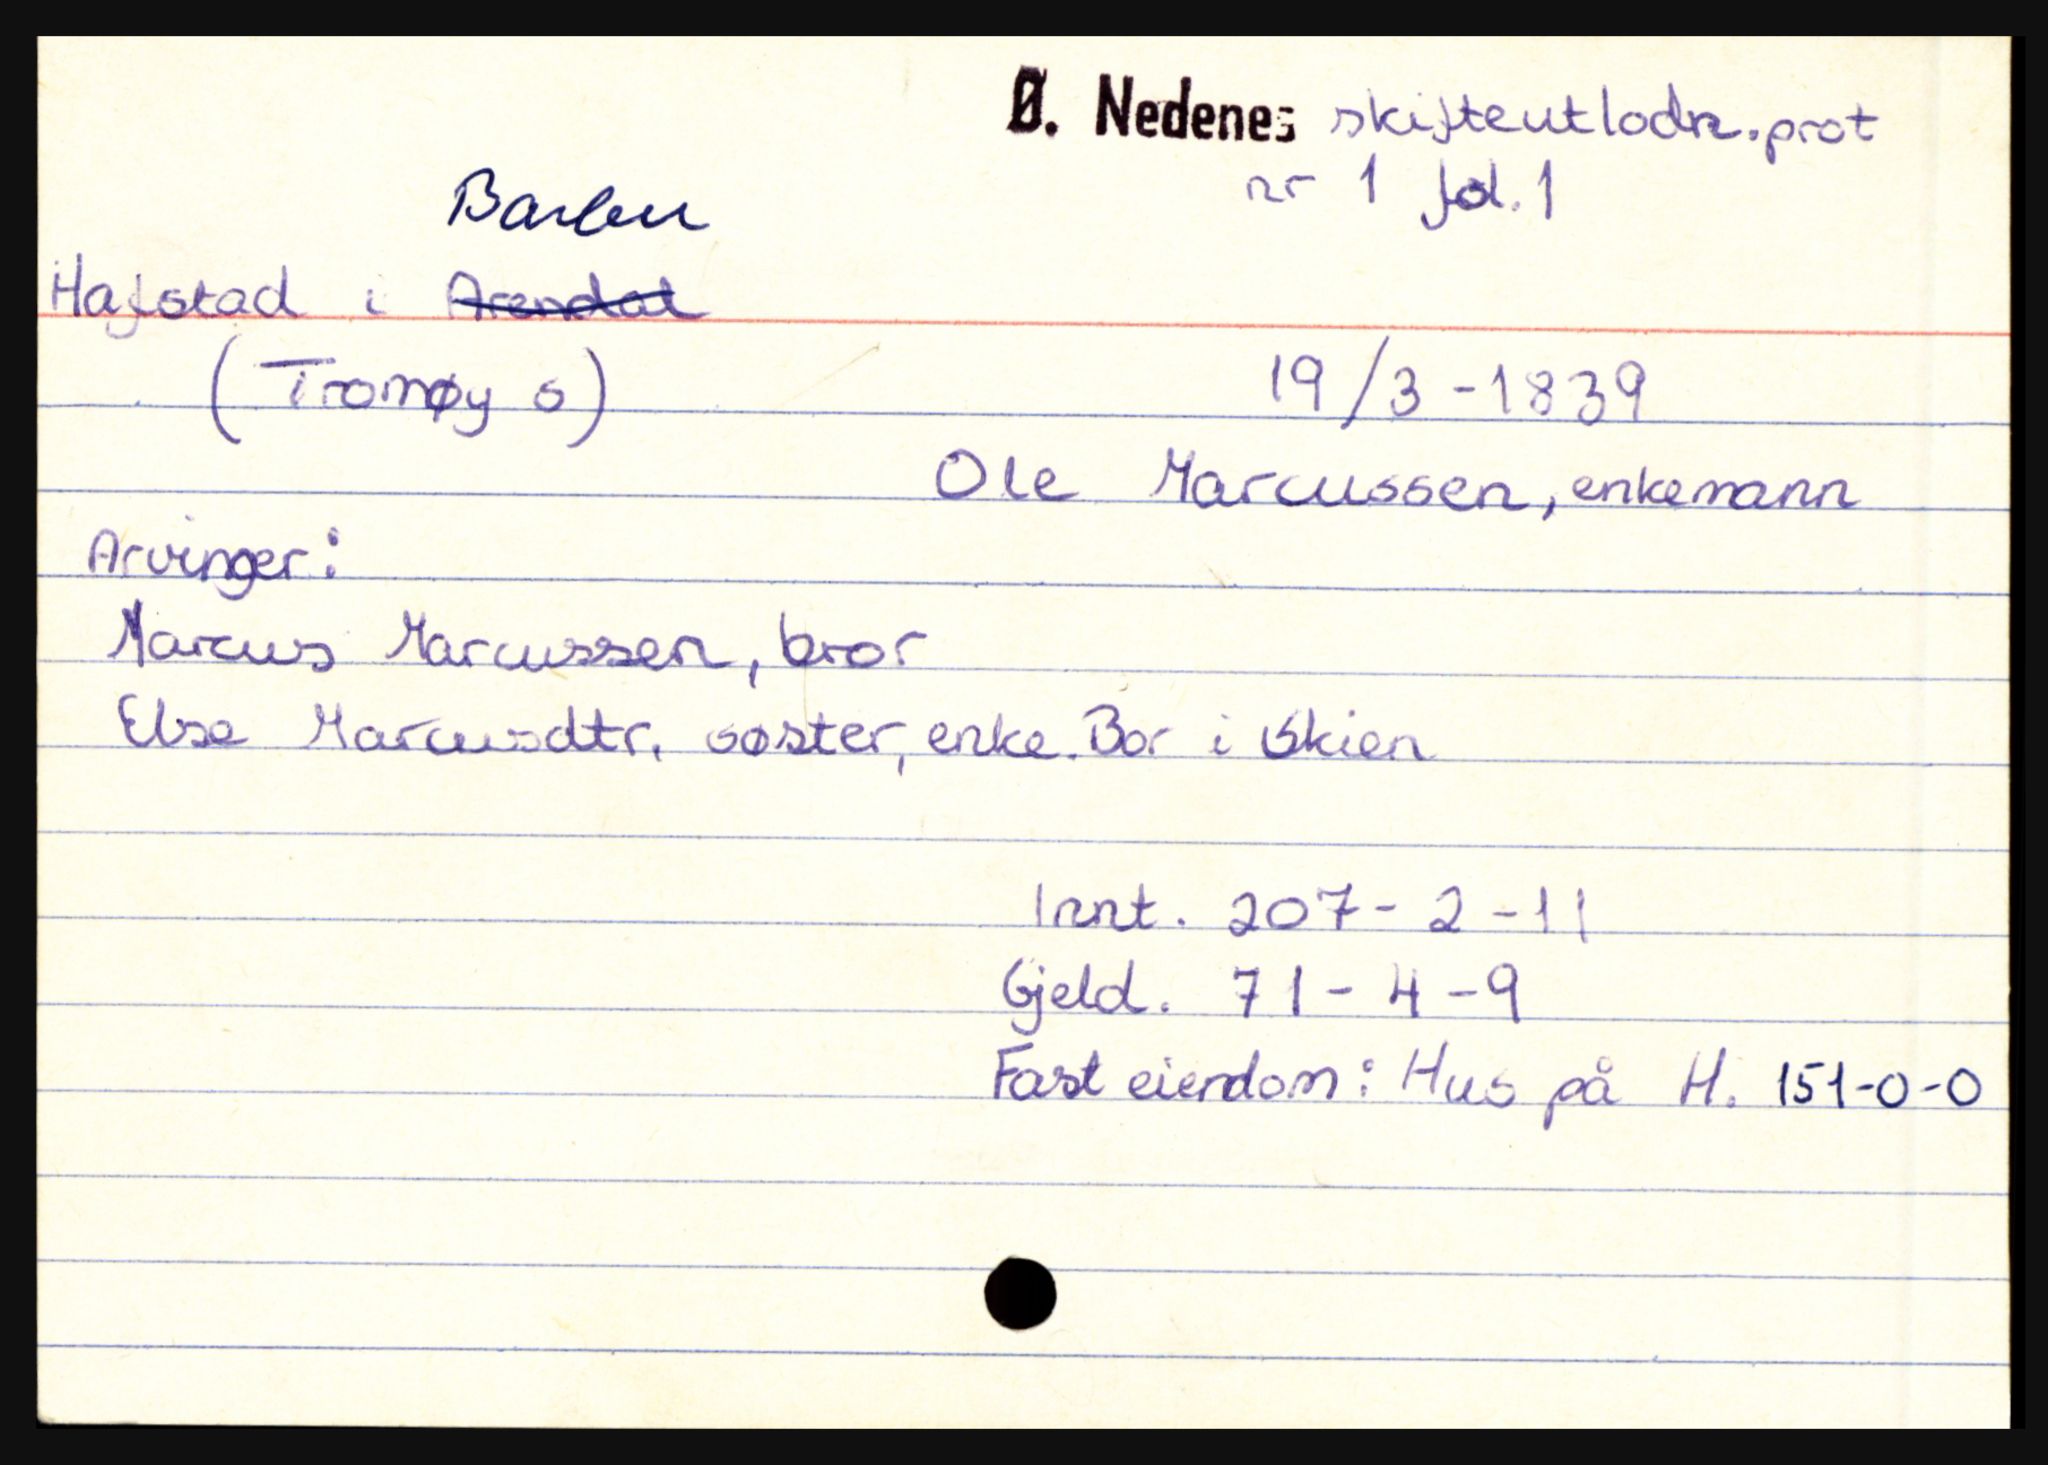 Ø. Nedenes skifteutlodn.prot
nr 1 fol. 1
Barbu
Hafstad i Arendal
(Tromøy s)
19/3-1839
Ole Marcussen, enkemann
Arvinger:
Marcus Marcussen, bror
Else Marcusdtr. søster, enke. Bor i Skien
Innt. 207-2-11
Gjeld. 71-4-9
Fast eiendom: Hus på H. 151-0-0